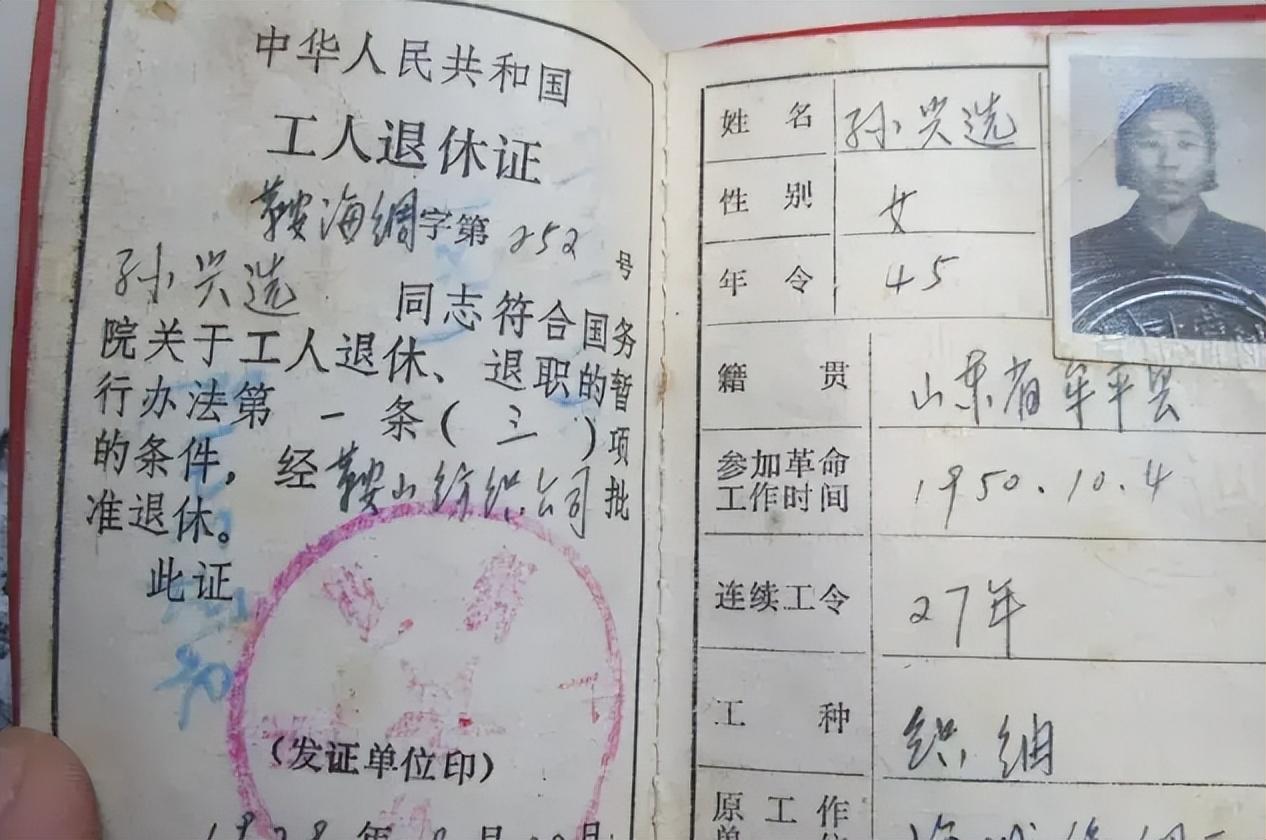 中华人民共和国
工人退休证
鞍海绸字第 252 号
孙兴选 同志符合国务
院关于工人退休、退职的暂
行办法第 一 条( 三 )项
的条件,经鞍山纺织公司批
准退休。
此证
(发证单位印)
姓名 孙兴选
性别 女
年令 45
籍贯 山东省牟平县
参加革命工作时间 1950.10.4
连续工令 27年
工种 织绸
原工作